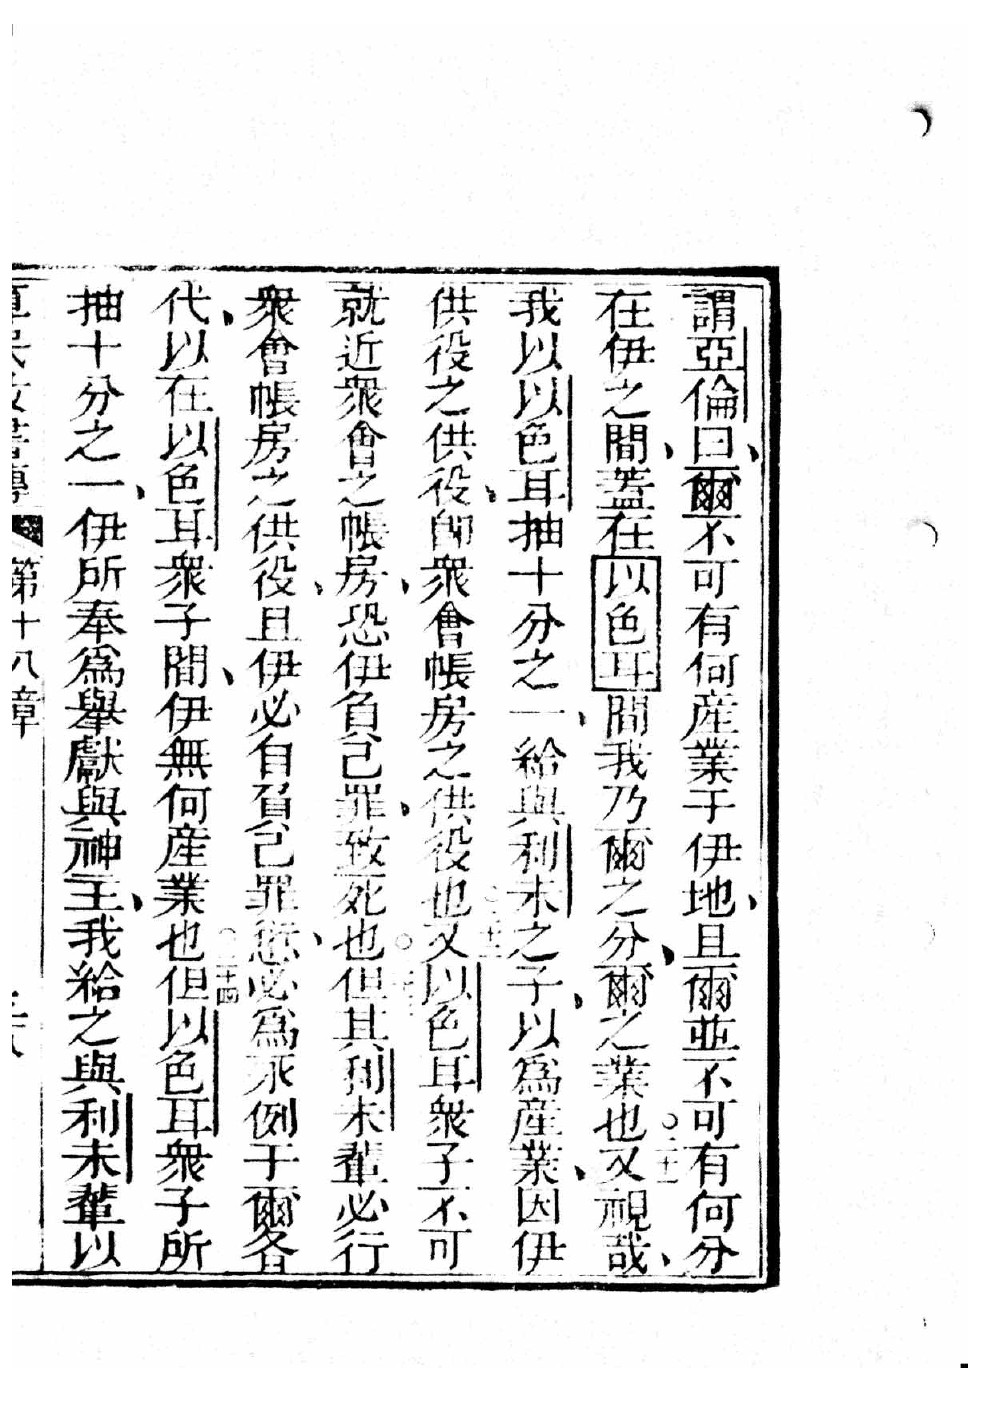 謂亞倫曰、爾不可有何產業于伊地、且爾並不可有何分
在伊之間、蓋在以色耳間我乃爾之分、爾之業也○二十一又視哉、
我以以色耳抽十分之一、給與利未之子、以爲產業、因伊
供役之供役、卽衆會帳房之供役也○二十二又以色耳衆子不可
就近衆會之帳房、恐伊負己罪、致死也○但其利未輩必行
衆會帳房之供役、且伊必自負己罪愆、必爲永例于爾各
代、以在以色耳衆子間、伊無何產業也○二十四但以色耳衆子所
抽十分之一、伊所奉爲舉獻與神主、我給之與利未輩以
第十八章